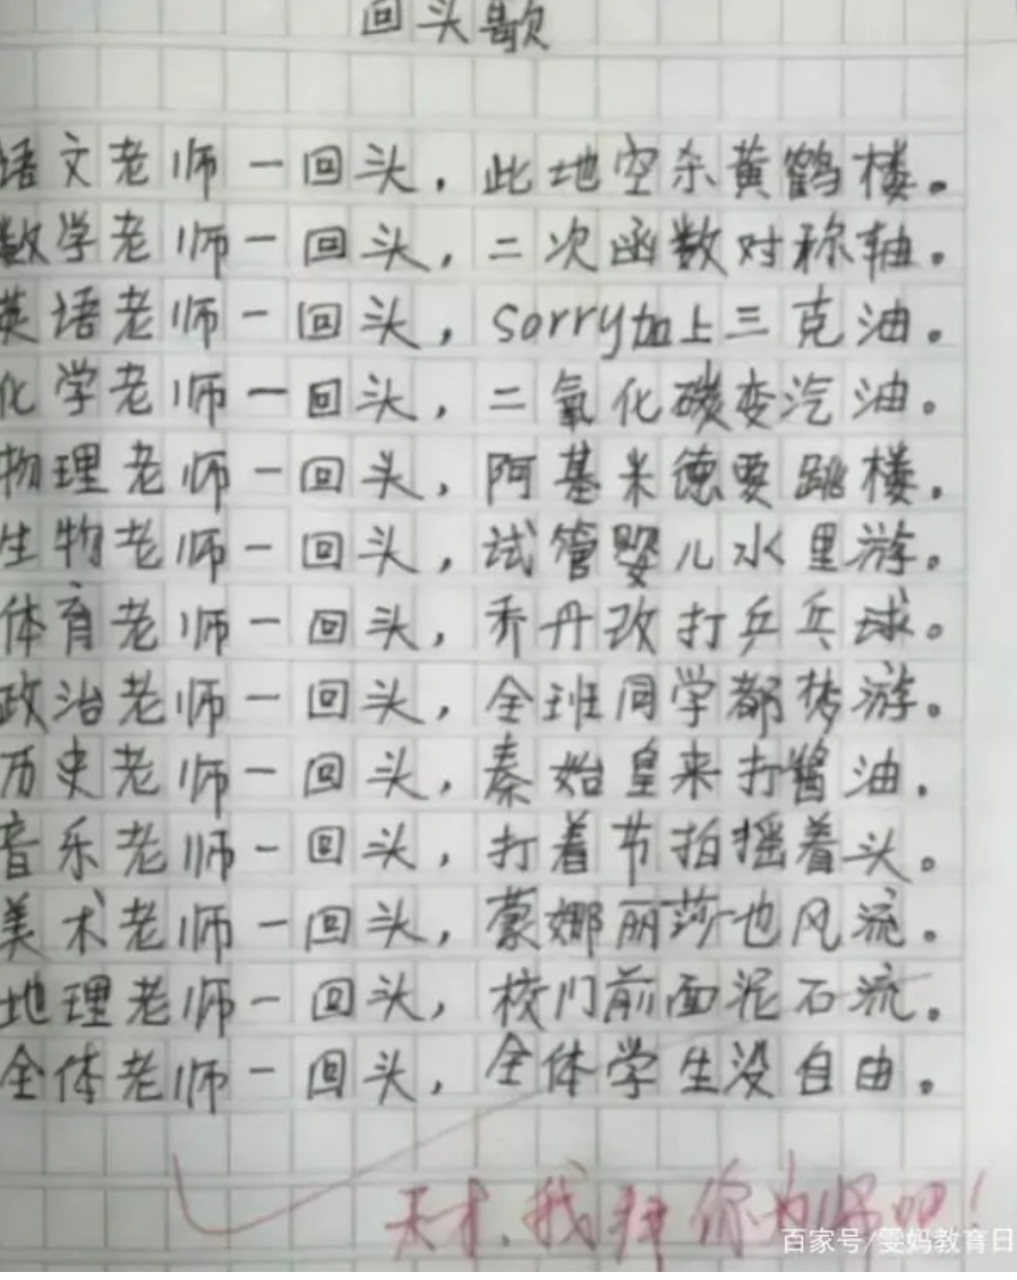 回头歌
语文老师一回头，此地空余黄鹤楼。
数学老师一回头，二次函数对称轴。
英语老师一回头，sorry加上三克油。
化学老师一回头，二氧化碳变汽油。
物理老师一回头，阿基米德要跳楼。
生物老师一回头，试管婴儿水里游。
体育老师一回头，乔丹改打乒乓球。
政治老师一回头，全班同学都梦游。
历史老师一回头，秦始皇来打酱油。
音乐老师一回头，打着节拍摇着头。
美术老师一回头，蒙娜丽莎也风流。
地理老师一回头，校门前面泥石流。
全体老师一回头，全体学生没自由。
天才，我拜你为师吧！
百家号/雯妈教育日